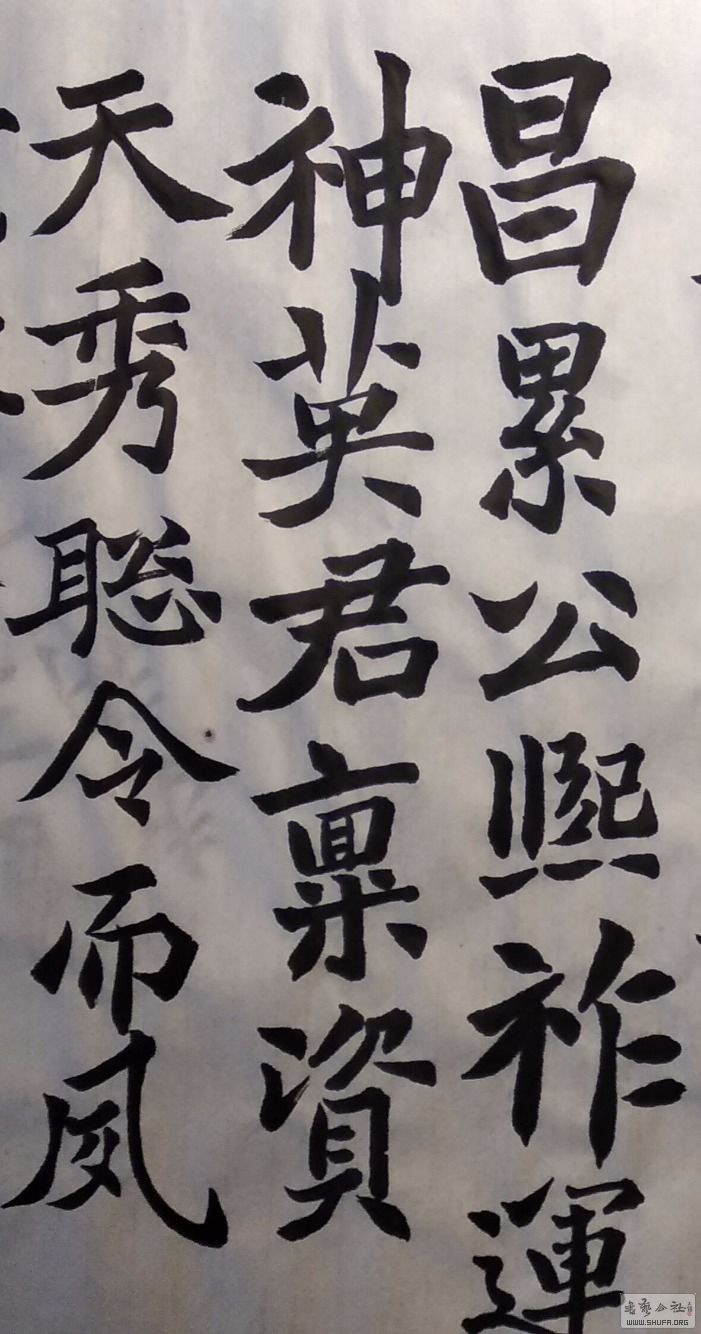 昌累公熙祚運
神英君稟資
天秀聡令而夙
書藝公社
WWW.SHUFA.ORG